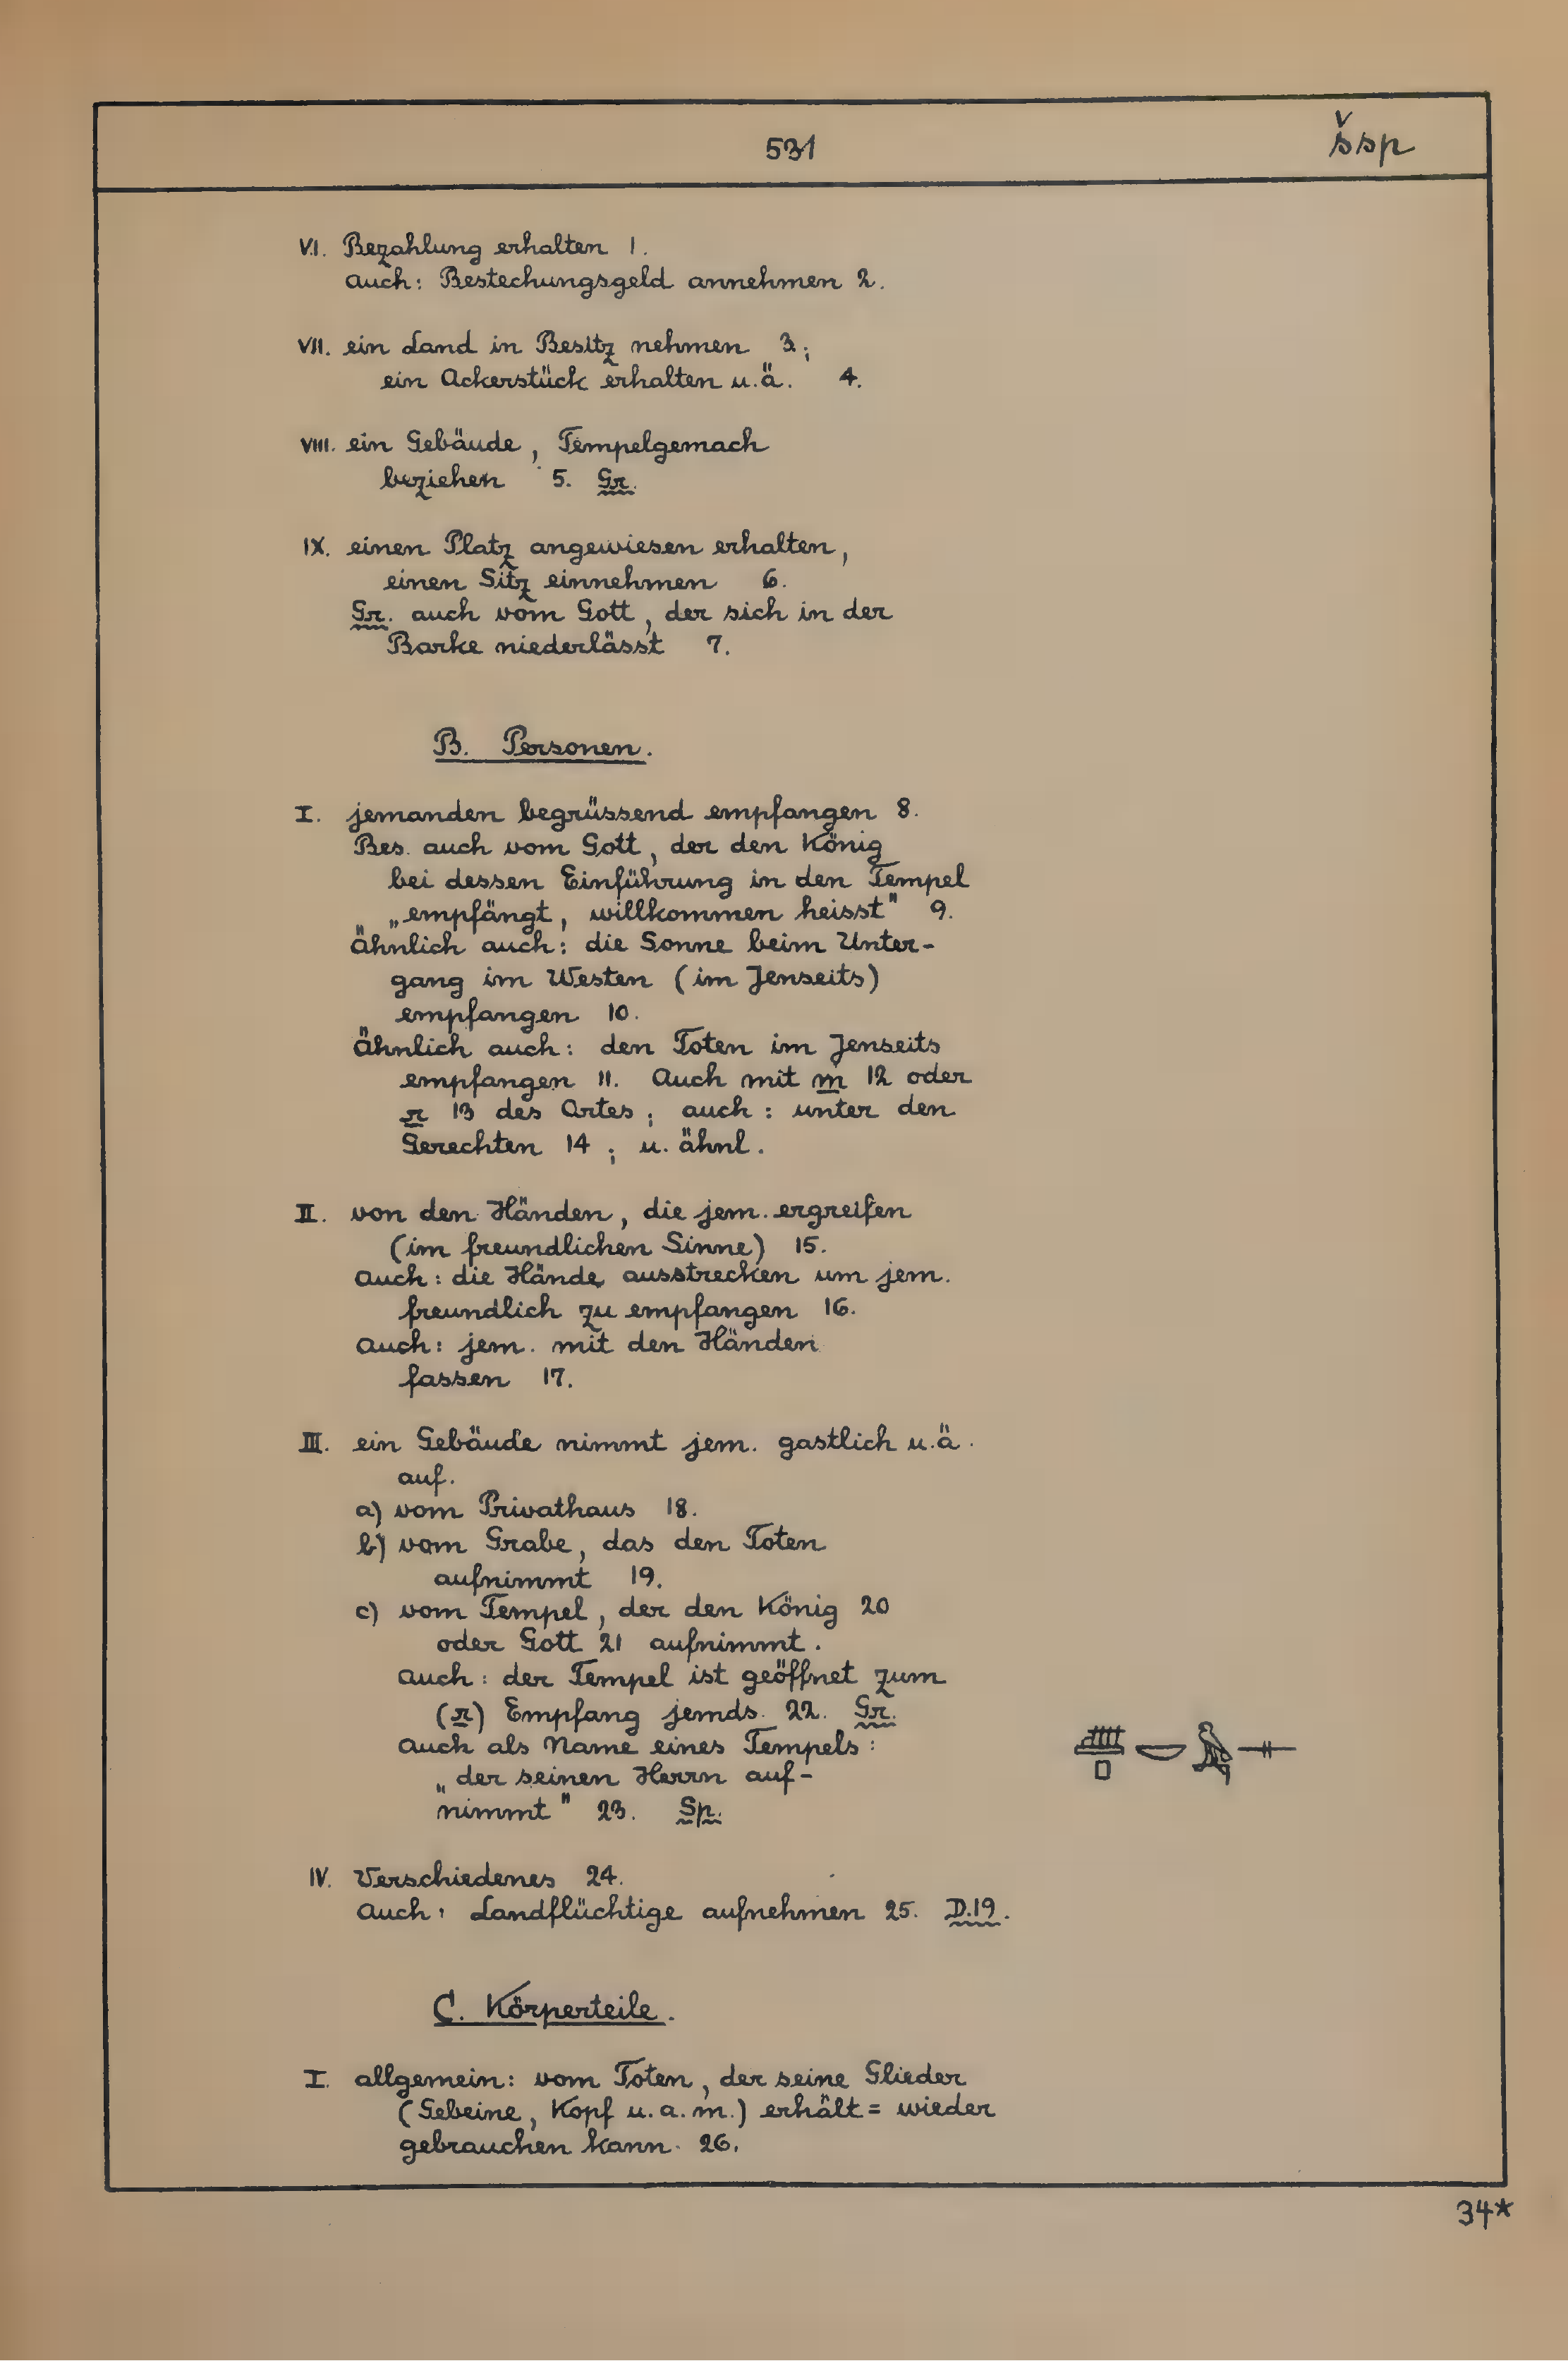 531
šsp
VI. Bezahlung erhalten 1.
auch: Bestechungsgeld annehmen 2.
VII. ein Land in Besitz nehmen 3;
ein Ackerstück erhalten u.ä. 4.
VIII. ein Gebäude, Tempelgemach
beziehen 5. Gr.
IX. einen Platz angewiesen erhalten,
einen Sitz einnehmen 6.
Gr. auch vom Gott, der sich in der
Barke niederlässt 7.
B. Personen.
I. jemanden begrüssend empfangen 8.
Bes. auch vom Gott, der den König
bei dessen Einführung in den Tempel
„empfängt, willkommen heisst" 9.
Ähnlich auch: die Sonne beim Unter-
gang im Westen (im Jenseits)
empfangen 10.
Ähnlich auch: den Toten im Jenseits
empfangen 11. Auch mit m 12 oder
r 13 des Ortes; auch: unter den
Gerechten 14; u. ähnl.
II. von den Händen, die jem. ergreifen
(im freundlichen Sinne) 15.
Auch: die Hände ausstrecken um jem.
freundlich zu empfangen 16.
Auch: jem. mit den Händen
fassen 17.
III. ein Gebäude nimmt jem. gastlich u.ä.
auf.
a) vom Privathaus 18.
b) vom Grabe, das den Toten
aufnimmt 19.
c) vom Tempel, der den König 20
oder Gott 21 aufnimmt.
Auch: der Tempel ist geöffnet zum
(r) Empfang jemds. 22. Gr.
Auch als Name eines Tempels:
„der seinen Herrn auf-
nimmt" 23. Sp.
IV. Verschiedenes 24.
Auch: Landflüchtige aufnehmen 25. D.19.
C. Körperteile.
I. allgemein: vom Toten, der seine Glieder
(Gebeine, Kopf u.a.m.) erhält = wieder
gebrauchen kann. 26.
34*